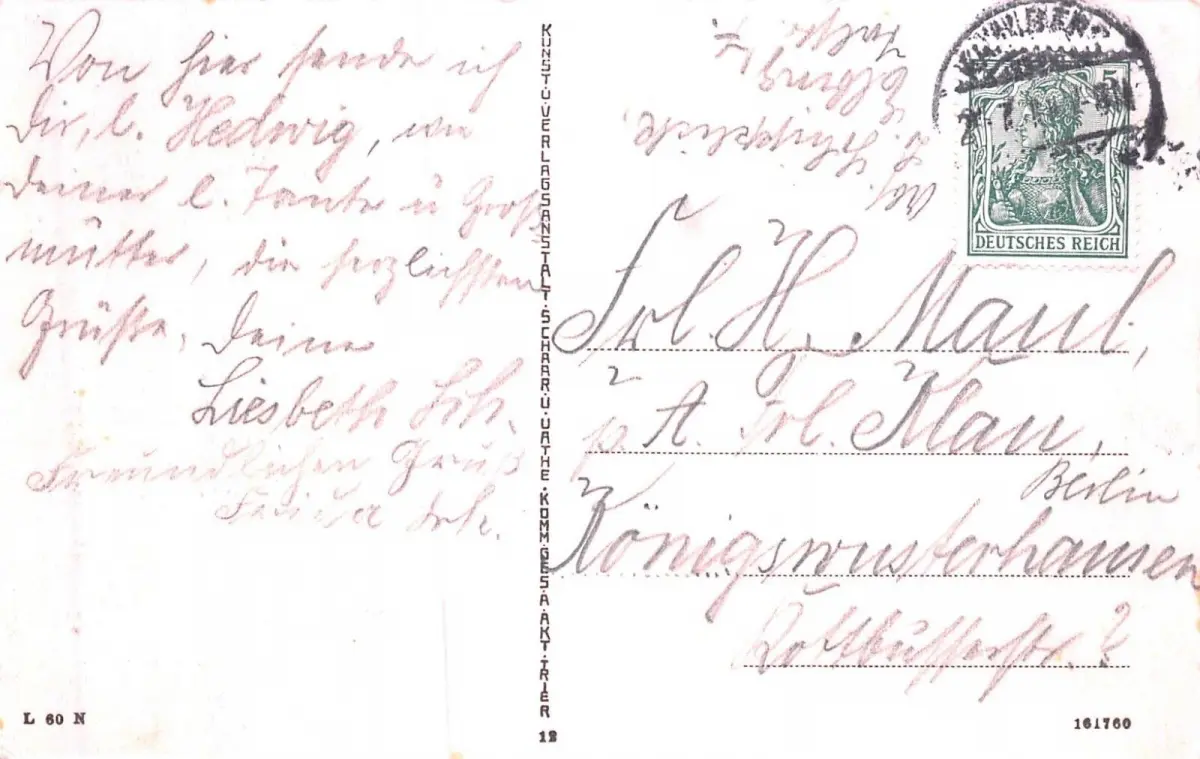 Von hier sende ich
Dir, l. Hedwig, wie
Deiner l. Tante u Groß
mutter, die herzlichsten
Grüße, Deine
Liesbeth
Freundlichen Gruß
KUNST.U.VERLAGSANSTALT.SCHAAR.U.DATHE.KOMM.GES.A.AKT.TRIER
12
L 60 N
Abs.
Elbing
5
DEUTSCHES REICH
Frl. H. Maul,
p. A. Frl. Klau,
Berlin
Königswusterhausen
Kottbusserstr. 2
161760